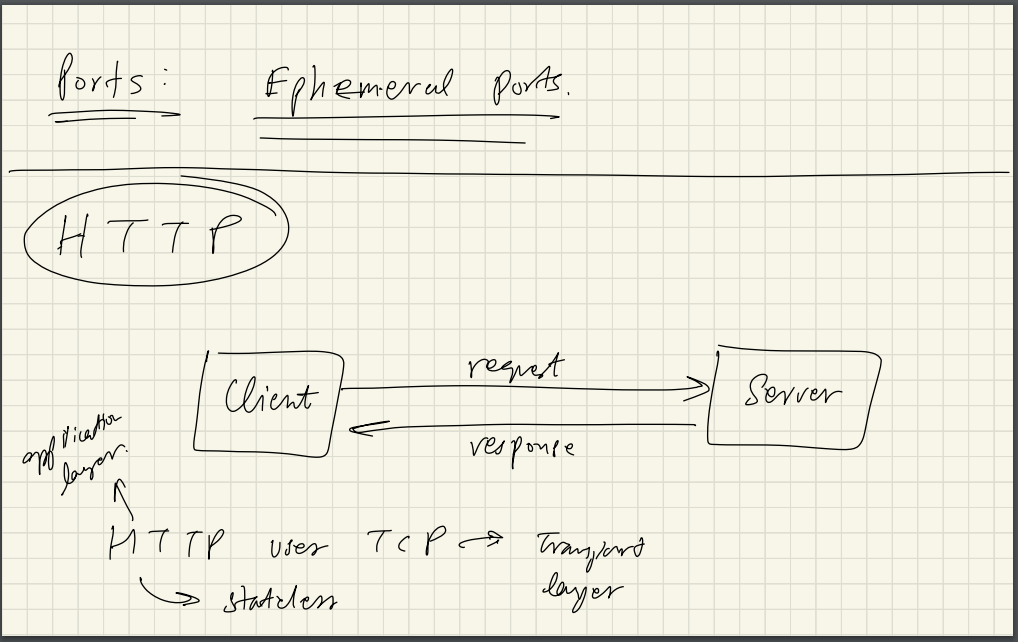 Ports: Ephemeral Ports.
HTTP
request
Client
Server
response
application
layer.
HTTP uses TCP → Transport
layer
stateless